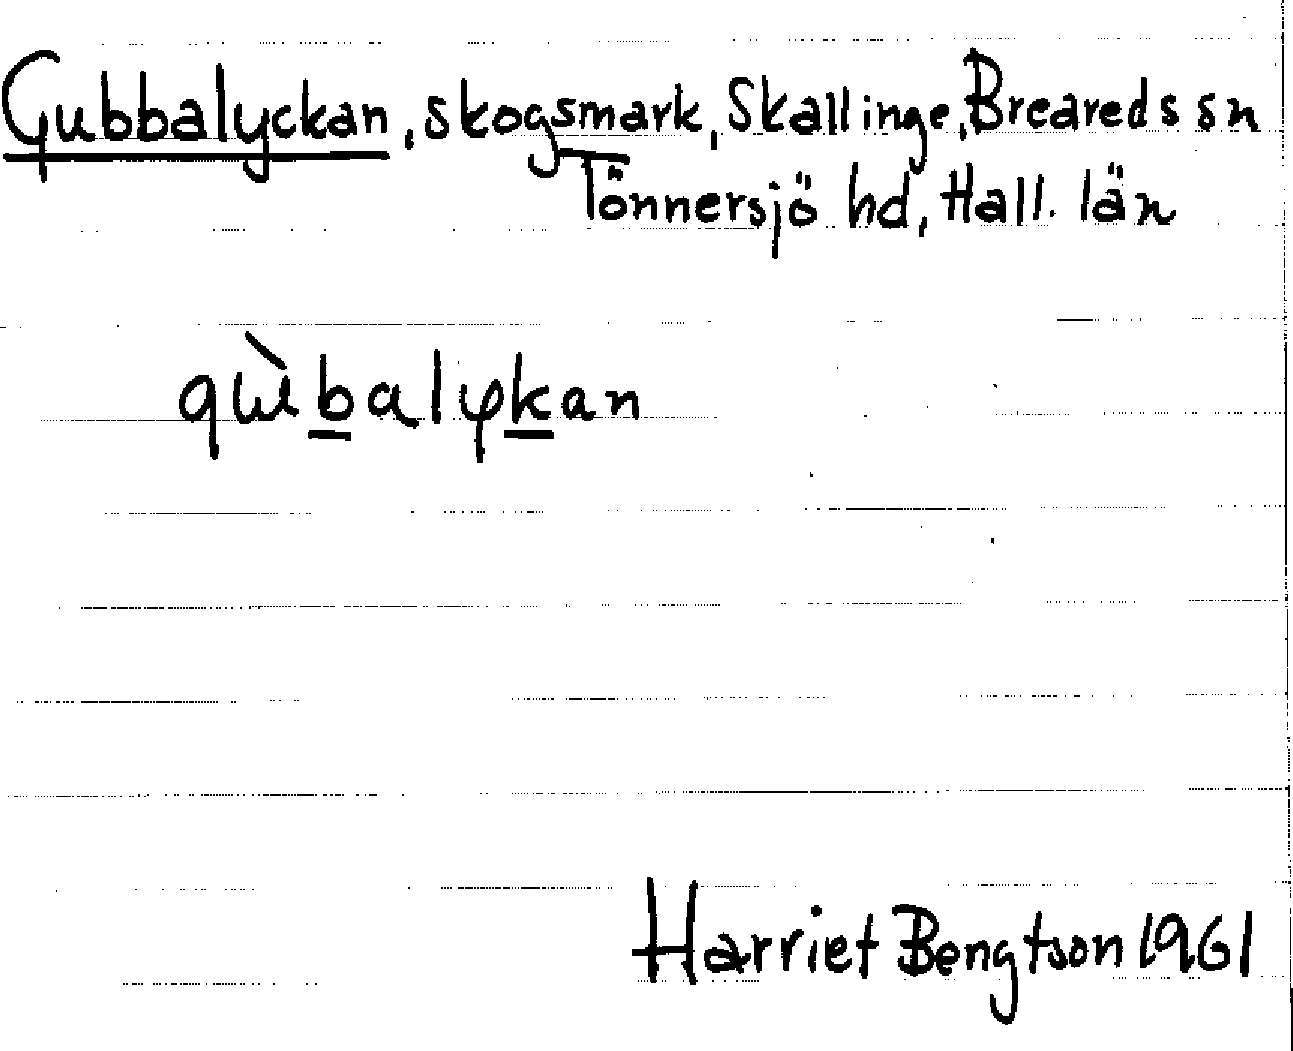 Gubbalyckan, skogsmark, Skallinge, Breareds sn
Tönnersjö hd, Hall. län
Harriet Bengtson 1961